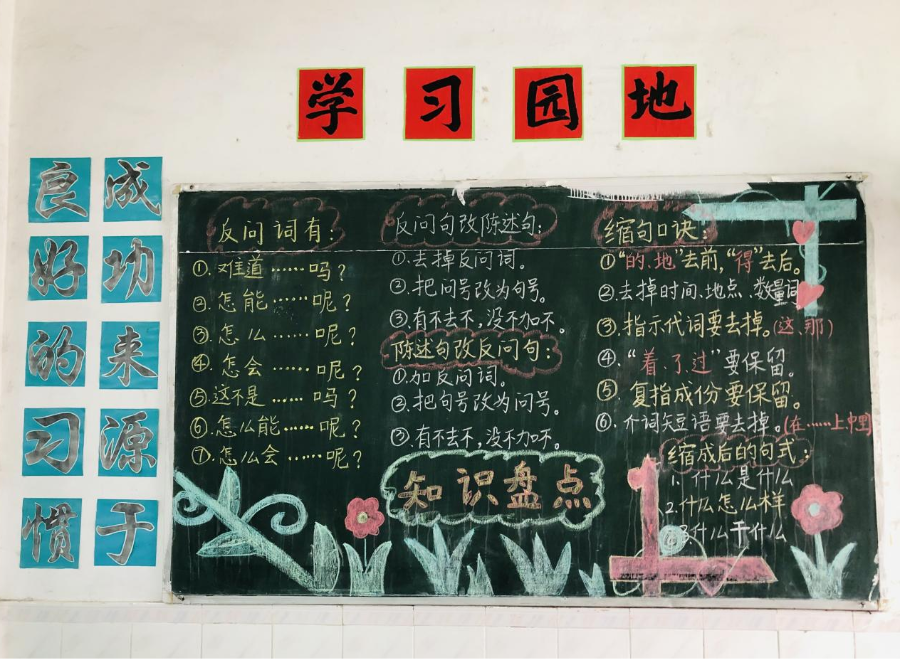 学习园地
成功来源于
良好的习惯
反问词有:
①.难道……吗?
②.怎能……呢?
③.怎么……呢?
④.怎会……呢?
⑤.这不是……吗?
⑥.怎么能……呢?
⑦.怎么会……呢?
反问句改陈述句:
①.去掉反问词。
②.把问号改为句号。
③.有不去不,没不加不。
陈述句改反问句:
①.加反问词。
②.把句号改为问号。
③.有不去不,没不加不。
知识盘点
缩句口诀:
①“的、地”去前,“得”去后。
②.去掉时间、地点、数量词
③.指示代词要去掉。(这、那)
④.“着、了、过”要保留。
⑤.复指成份要保留。
⑥.介词短语要去掉。(在……上中里)
缩成后的句式:
1.什么是什么
2.什么怎么样
3什么干什么